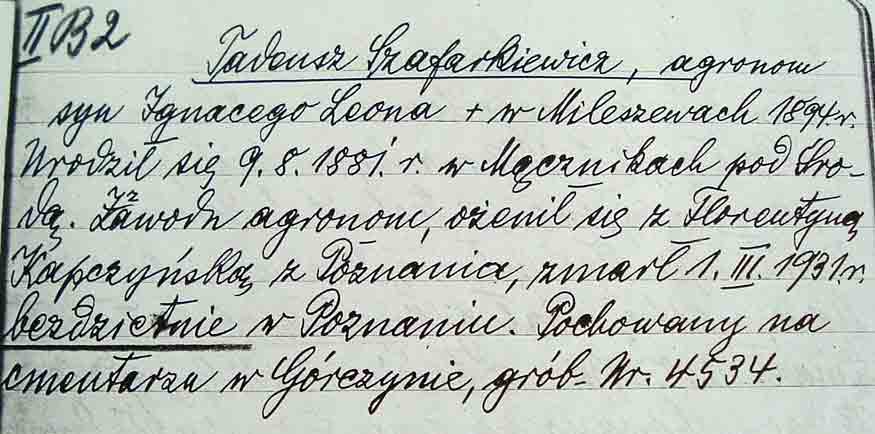 II B 2
Tadeusz Szafarkiewicz, agronom
syn Ignacego Leona + w Mileszewach 1894.r.
Urodził się 9. 8. 1881. r. w Mącznikach pod Śro-
dą. Zawodu agronom, ożenił się z Florentyną
Kapczyńską z Poznania, zmarł 1. III. 1931.r.
bezdzietnie w Poznaniu. Pochowany na
cmentarzu w Górczynie, grób. Nr. 4534.